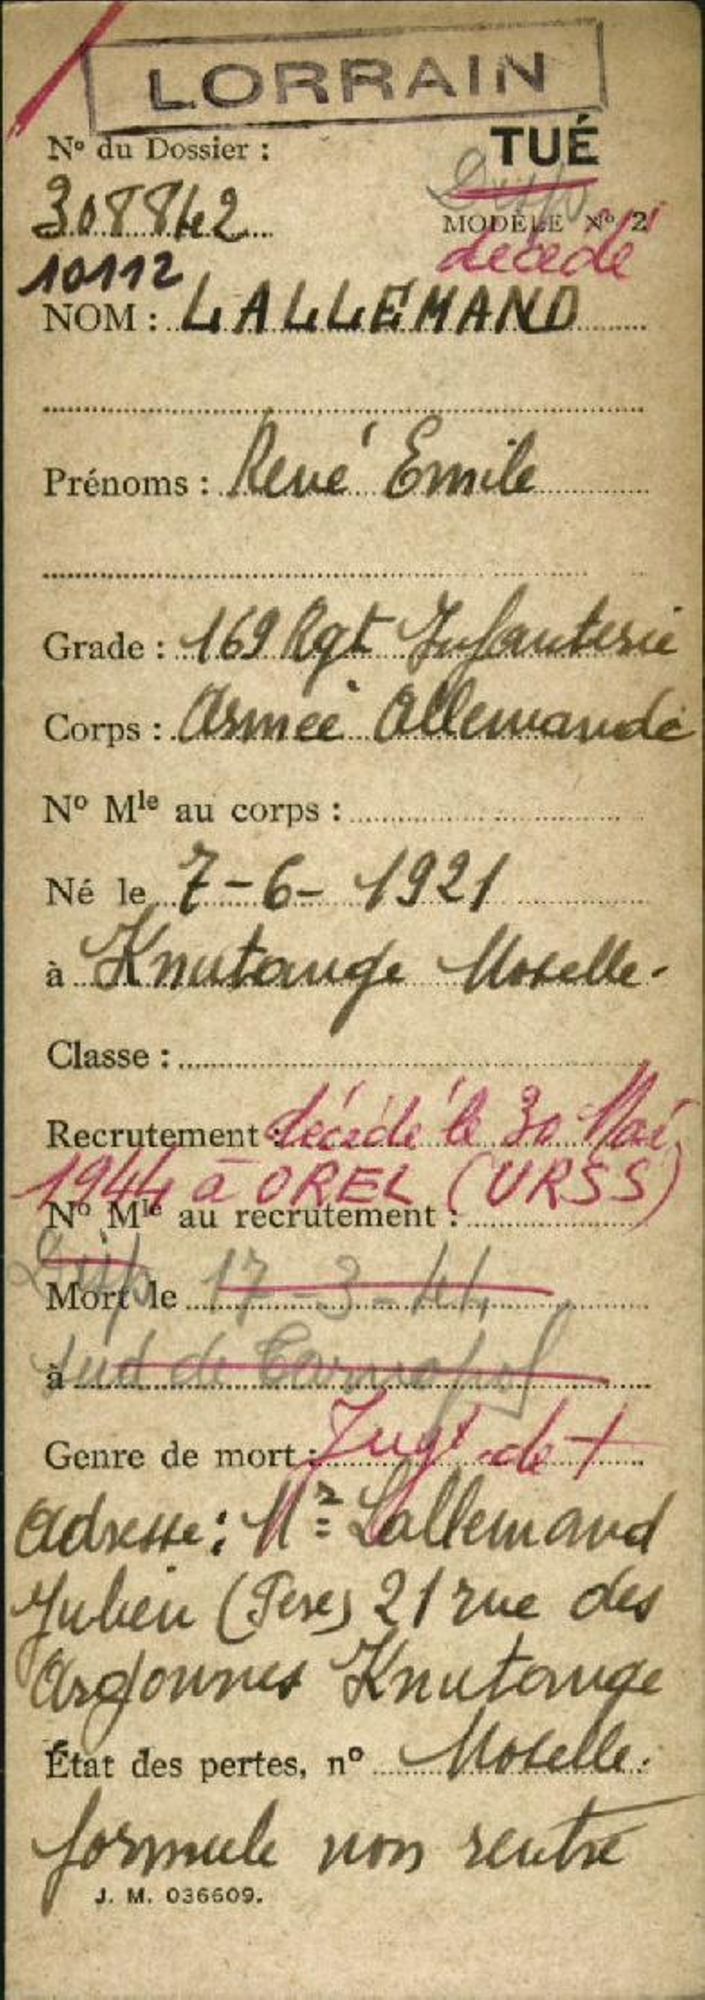 LORRAIN
N° du Dossier :
TUÉ
308842
Disp
MODÈLE N° 2
décédé
10112
NOM : LALLEMAND
Prénoms : René Emile
Grade : 169 Rgt Infanterie
Corps : Armée Allemande
N° Mle au corps :
Né le 7-6-1921
à Knutange Moselle.
Classe :
Recrutement : décédé le 30 Mai
1944 à OREL (URSS)
N° Mle au recrutement :
Disp
Mort le 17-3-44
à Sud de Tarnopol
Genre de mort : Jugt de +
Adresse : Mr Lallemand
Julien (Père) 21 rue des
Argonnes Knutange
État des pertes, n° Moselle.
formule non rentré
J. M. 036609.